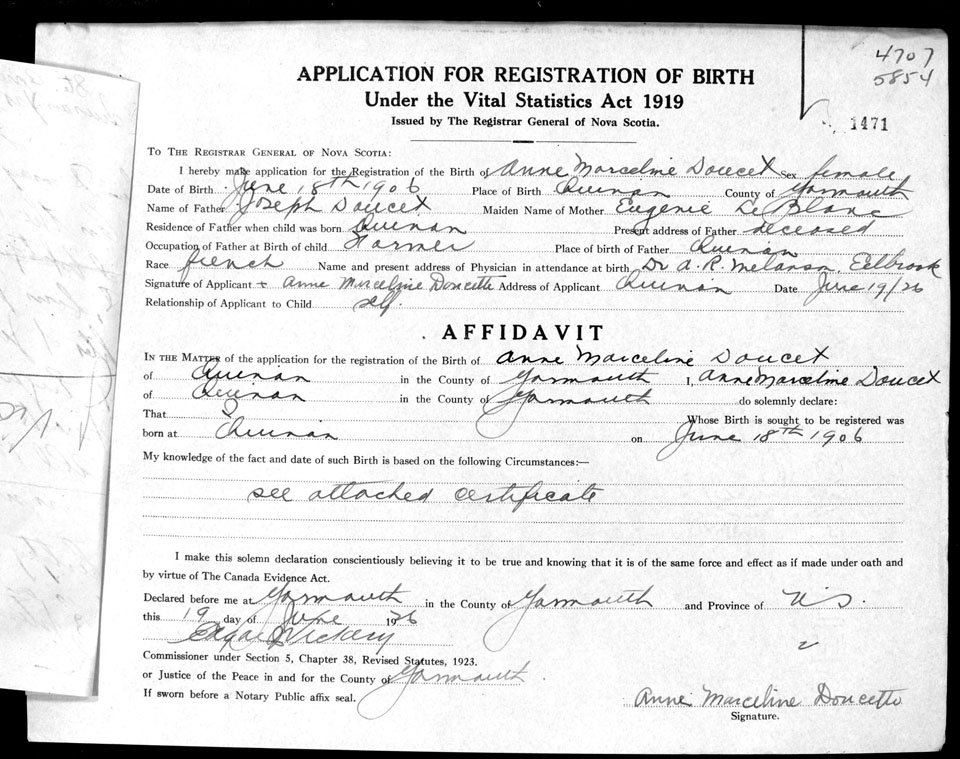 4707
5854
1471
APPLICATION FOR REGISTRATION OF BIRTH
Under the Vital Statistics Act 1919
Issued by The Registrar General of Nova Scotia.
To The Registrar General of Nova Scotia:
I hereby make application for the Registration of the Birth of Anne Marceline Doucet Sex female
Date of Birth June 18th 1906 Place of Birth Quinan County of Yarmouth
Name of Father Joseph Doucet Maiden Name of Mother Eugenie Le Blanc
Residence of Father when child was born Quinan Present address of Father deceased
Occupation of Father at Birth of child Farmer Place of birth of Father Quinan
Race french Name and present address of Physician in attendance at birth Dr A. R. Melanson Eelbrook
Signature of Applicant Anne Marceline Doucette Address of Applicant Quinan Date June 19/26
Relationship of Applicant to Child self
AFFIDAVIT
In the Matter of the application for the registration of the Birth of Anne Marceline Doucet
of Quinan in the County of Yarmouth I, Anne Marceline Doucet
of Quinan in the County of Yarmouth do solemnly declare:
That I Whose Birth is sought to be registered was
born at Quinan on June 18th 1906
My knowledge of the fact and date of such Birth is based on the following Circumstances:—
see attached certificate
I make this solemn declaration conscientiously believing it to be true and knowing that it is of the same force and effect as if made under oath and
by virtue of The Canada Evidence Act.
Declared before me at Yarmouth in the County of Yarmouth and Province of N S.
this 19 day of June 1926
Edgar J Vickery
Commissioner under Section 5, Chapter 38, Revised Statutes, 1923.
or Justice of the Peace in and for the County of Yarmouth
If sworn before a Notary Public affix seal.
Anne Marceline Doucette
Signature.